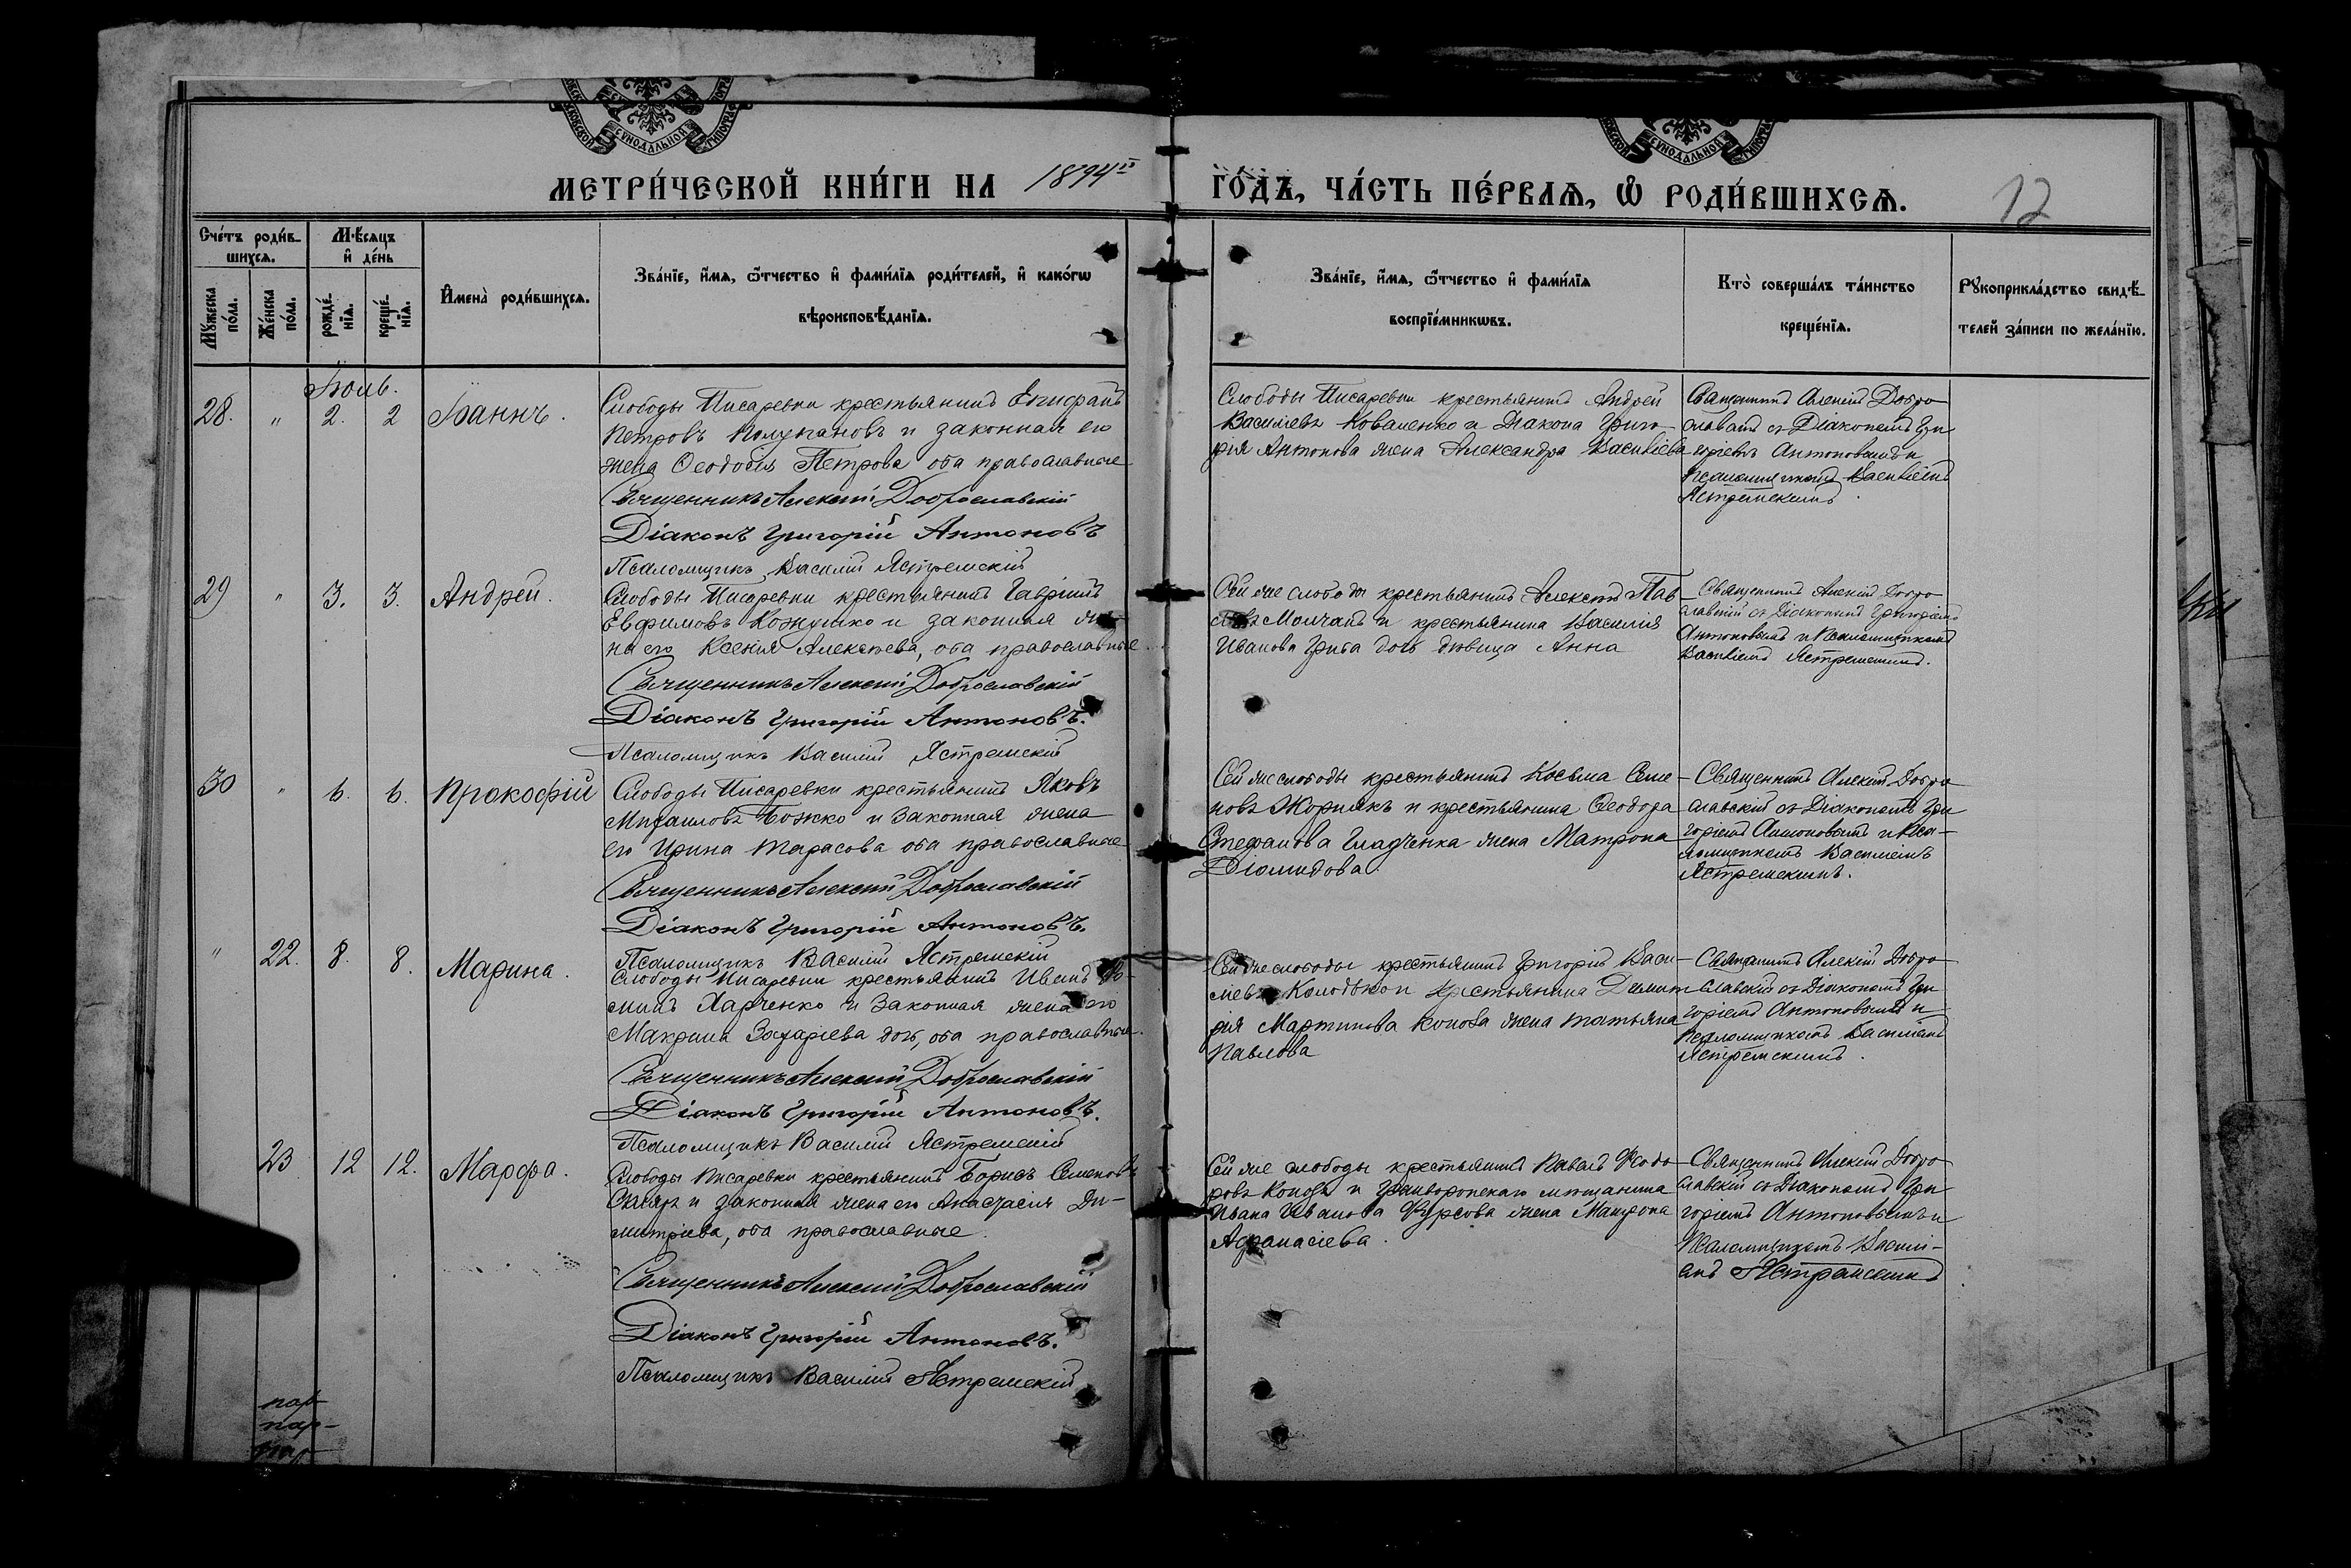 МЕТРИ́ЧЕСКОЙ КНИ́ГИ НА 1894й ГО́ДЪ, ЧА́СТЬ ПЕ́РВАѦ, Ѡ РОДИ́ВШИХСѦ. 12
Сче́тъ роди́в-
шихсѧ.
Мꙋ́жеска по́ла.
Же́нска по́ла.
Мѣ́сѧцъ
и҆ де́нь
рожде́нїѧ.
креще́нїѧ.
И҆мена̀ роди́вшихсѧ.
Зва́нїе, и҆́мѧ, ѻ҆́тчество и҆ фами́лїѧ роди́телей, и҆ како́гѡ
вѣроисповѣ́данїѧ.
Зва́нїе, и҆́мѧ, ѻ҆́тчество и҆ фами́лїѧ
воспрїе́мникѡвъ.
Кто̀ соверша́лъ та́инство
креще́нїѧ.
Рꙋкоприкла́дство свидѣ́-
телей за́писи по жела́нїю.
Іюль.
28. " 2. 2 Іоаннъ.
Слободы Писаревки крестьянинъ Епифанъ
Петровъ и законная его
жена Ѳеодосія Петрова оба православные
Священникъ Алексій Доброславскій
Діаконъ Григорій Антоновъ
Псаломщикъ Василій Ястремскій
Слободы Писаревки крестьянинъ Андрей
Васильевъ Коваленко и Діакона Григо-
рія Антонова жена Александра Василіева
Священникъ Алексій Добро
славскій съ Діакономъ Гри
горіемъ Антоновымъ и
псаломщикомъ Василіемъ
Ястремскимъ.
29 " 3. 3. Андрей.
Слободы Писаревки крестьянинъ Гавріилъ
Евфимовъ Кожушко и законная же-
на его Ксенія Алексѣева, оба православные.
Священникъ Алексій Доброславскій
Діаконъ Григорій Антоновъ.
Псаломщикъ Василій Ястремскій
Сей же слободы крестьянинъ Алексѣй Пав-
ловъ Молчанъ и крестьянина Василія
Иванова Гриба дочь дѣвица Анна
Священникъ Алексій Добро
славскій съ Діакономъ Григоріемъ
Антоновымъ и Псаломщикомъ
Василіемъ Ястремскимъ.
30 " 6. 6. Прокофій
Слободы Писаревки крестьянинъ Яковъ
Михаиловъ Божко и законная жена
его Ирина Тарасова оба православные
Священникъ Алексій Доброславскій
Діаконъ Григорій Антоновъ.
Псаломщикъ Василій Ястремскій
Сей же слободы крестьянинъ Косьма Семе-
новъ Жорнякъ и крестьянина Ѳеодора
Стефанова Гладченка жена Матрона
Діомидова.
Священникъ Алексій Добро
славскій съ Діакономъ Гри
горіемъ Антоновымъ и Пса-
ломщикомъ Василіемъ
Ястремскимъ.
" 22. 8. 8. Марина.
Слободы Писаревки крестьянинъ Иванъ Ѳо-
минъ Харченко и законная жена его
Макрина Захаріева дочь, оба православные.
Священникъ Алексій Доброславскій
Діаконъ Григорій Антоновъ.
Псаломщикъ Василій Ястремскій
Сей же слободы крестьянинъ Григорій Васи-
льевъ и крестьянина Димит
рія Мартинова жена Татьяна
Павлова
Священникъ Алексій Добро
славскій съ Діакономъ Гри
горіемъ Антоновымъ и
Псаломщикомъ Василіемъ
Ястремскимъ.
23 12 12. Марфа.
Слободы Писаревки крестьянинъ Борисъ Семеновъ
и законная жена его Анастасія Ди-
митріева, оба православные.
Священникъ Алексій Доброславскій
Діаконъ Григорій Антоновъ.
Псаломщикъ Василій Ястремскій
Сей же слободы крестьянинъ Павелъ Ѳеодо
ровъ и Грайворонскаго мѣщанина
Ивана Иванова Курсова жена
Аѳанасіева.
Священникъ Алексій Добро
славскій съ Діакономъ Гри
горіемъ Антоновымъ и
Псаломщикомъ Василі-
емъ Ястремскимъ